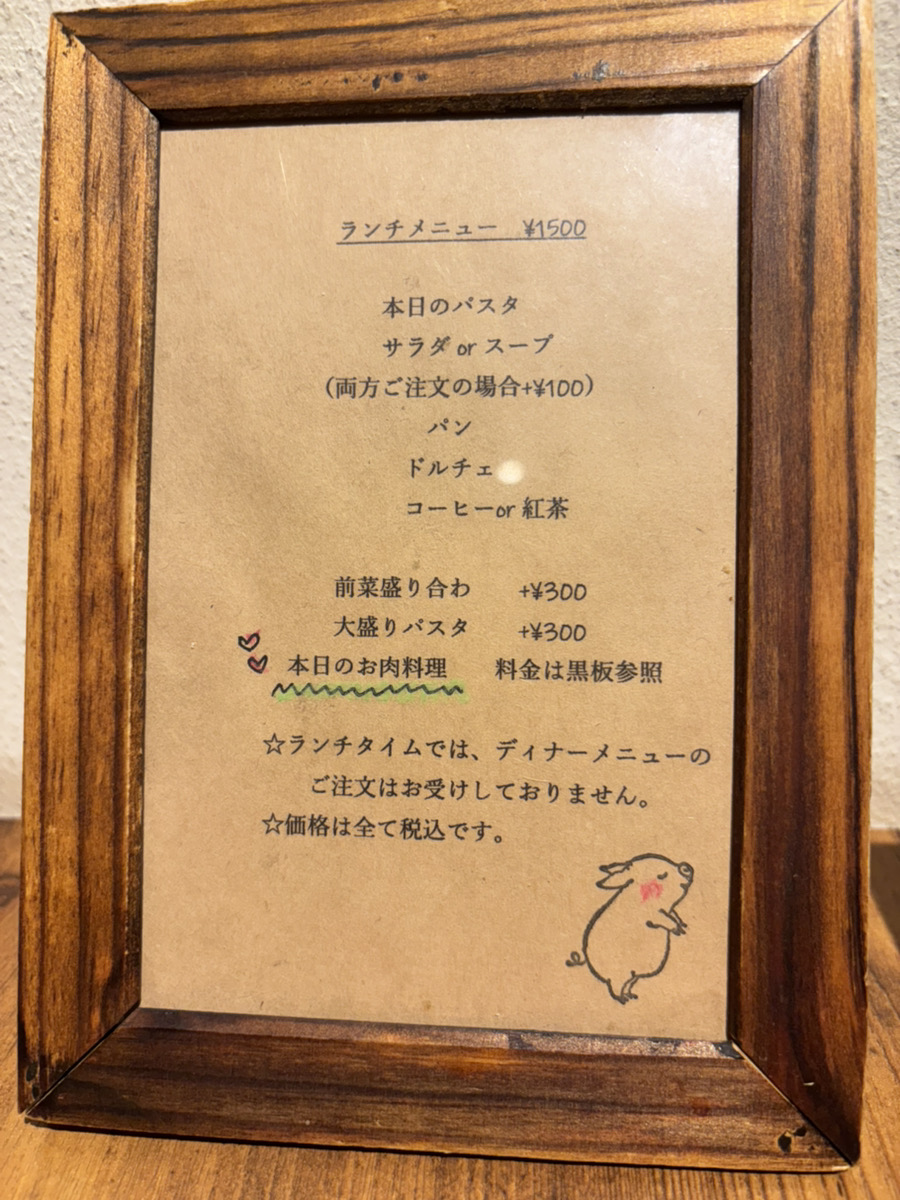 ランチメニュー ¥1500
本日のパスタ
サラダ or スープ
(両方ご注文の場合+¥100)
パン
ドルチェ
コーヒーor 紅茶
前菜盛り合わ +¥300
大盛りパスタ +¥300
本日のお肉料理 料金は黒板参照
☆ランチタイムでは、ディナーメニューの
ご注文はお受けしておりません。
☆価格は全て税込です。